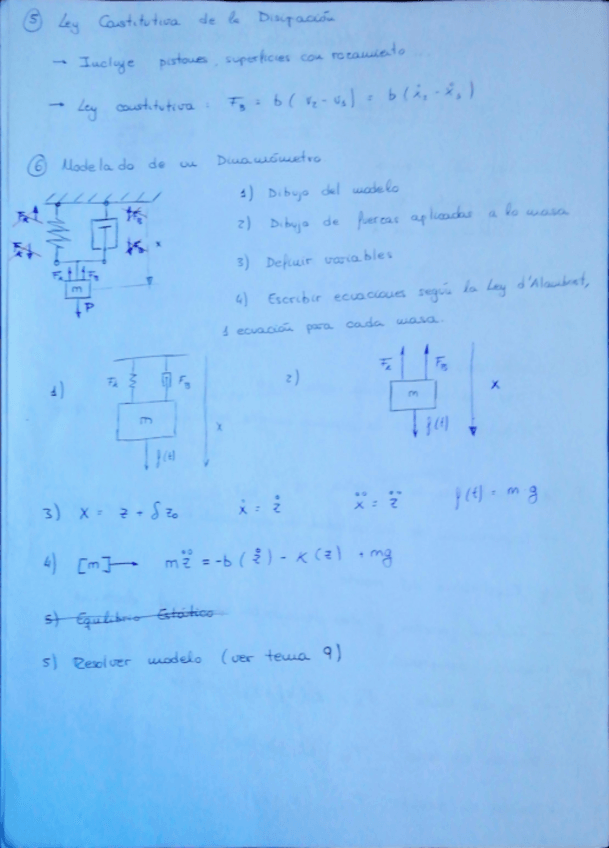 ⑤ Ley Constitutiva de la Disipación
→ Incluye pistones, superficies con rozamiento...
→ Ley constitutiva: F_B = b(v₂ - v₁) = b(ẋ₂ - ẋ₁)
⑥ Modelado de un Dinamómetro
1) Dibujo del modelo
2) Dibujo de fuerzas aplicadas a la masa
3) Definir variables
4) Escribir ecuaciones según la Ley d'Alambert,
1 ecuación para cada masa.
F_K F_B
F_K F_B x
F_K F_B
m
P
1) F_K F_B
m
x
f(t)
2) F_K F_B
m
x
f(t)
3) x = z + δz₀ ẋ = ż ẍ = z̈ f(t) = m g
4) [m] → m z̈ = -b(ż) - K(z) + mg
5) Equilibrio Estático
5) Resolver modelo (ver tema 9)